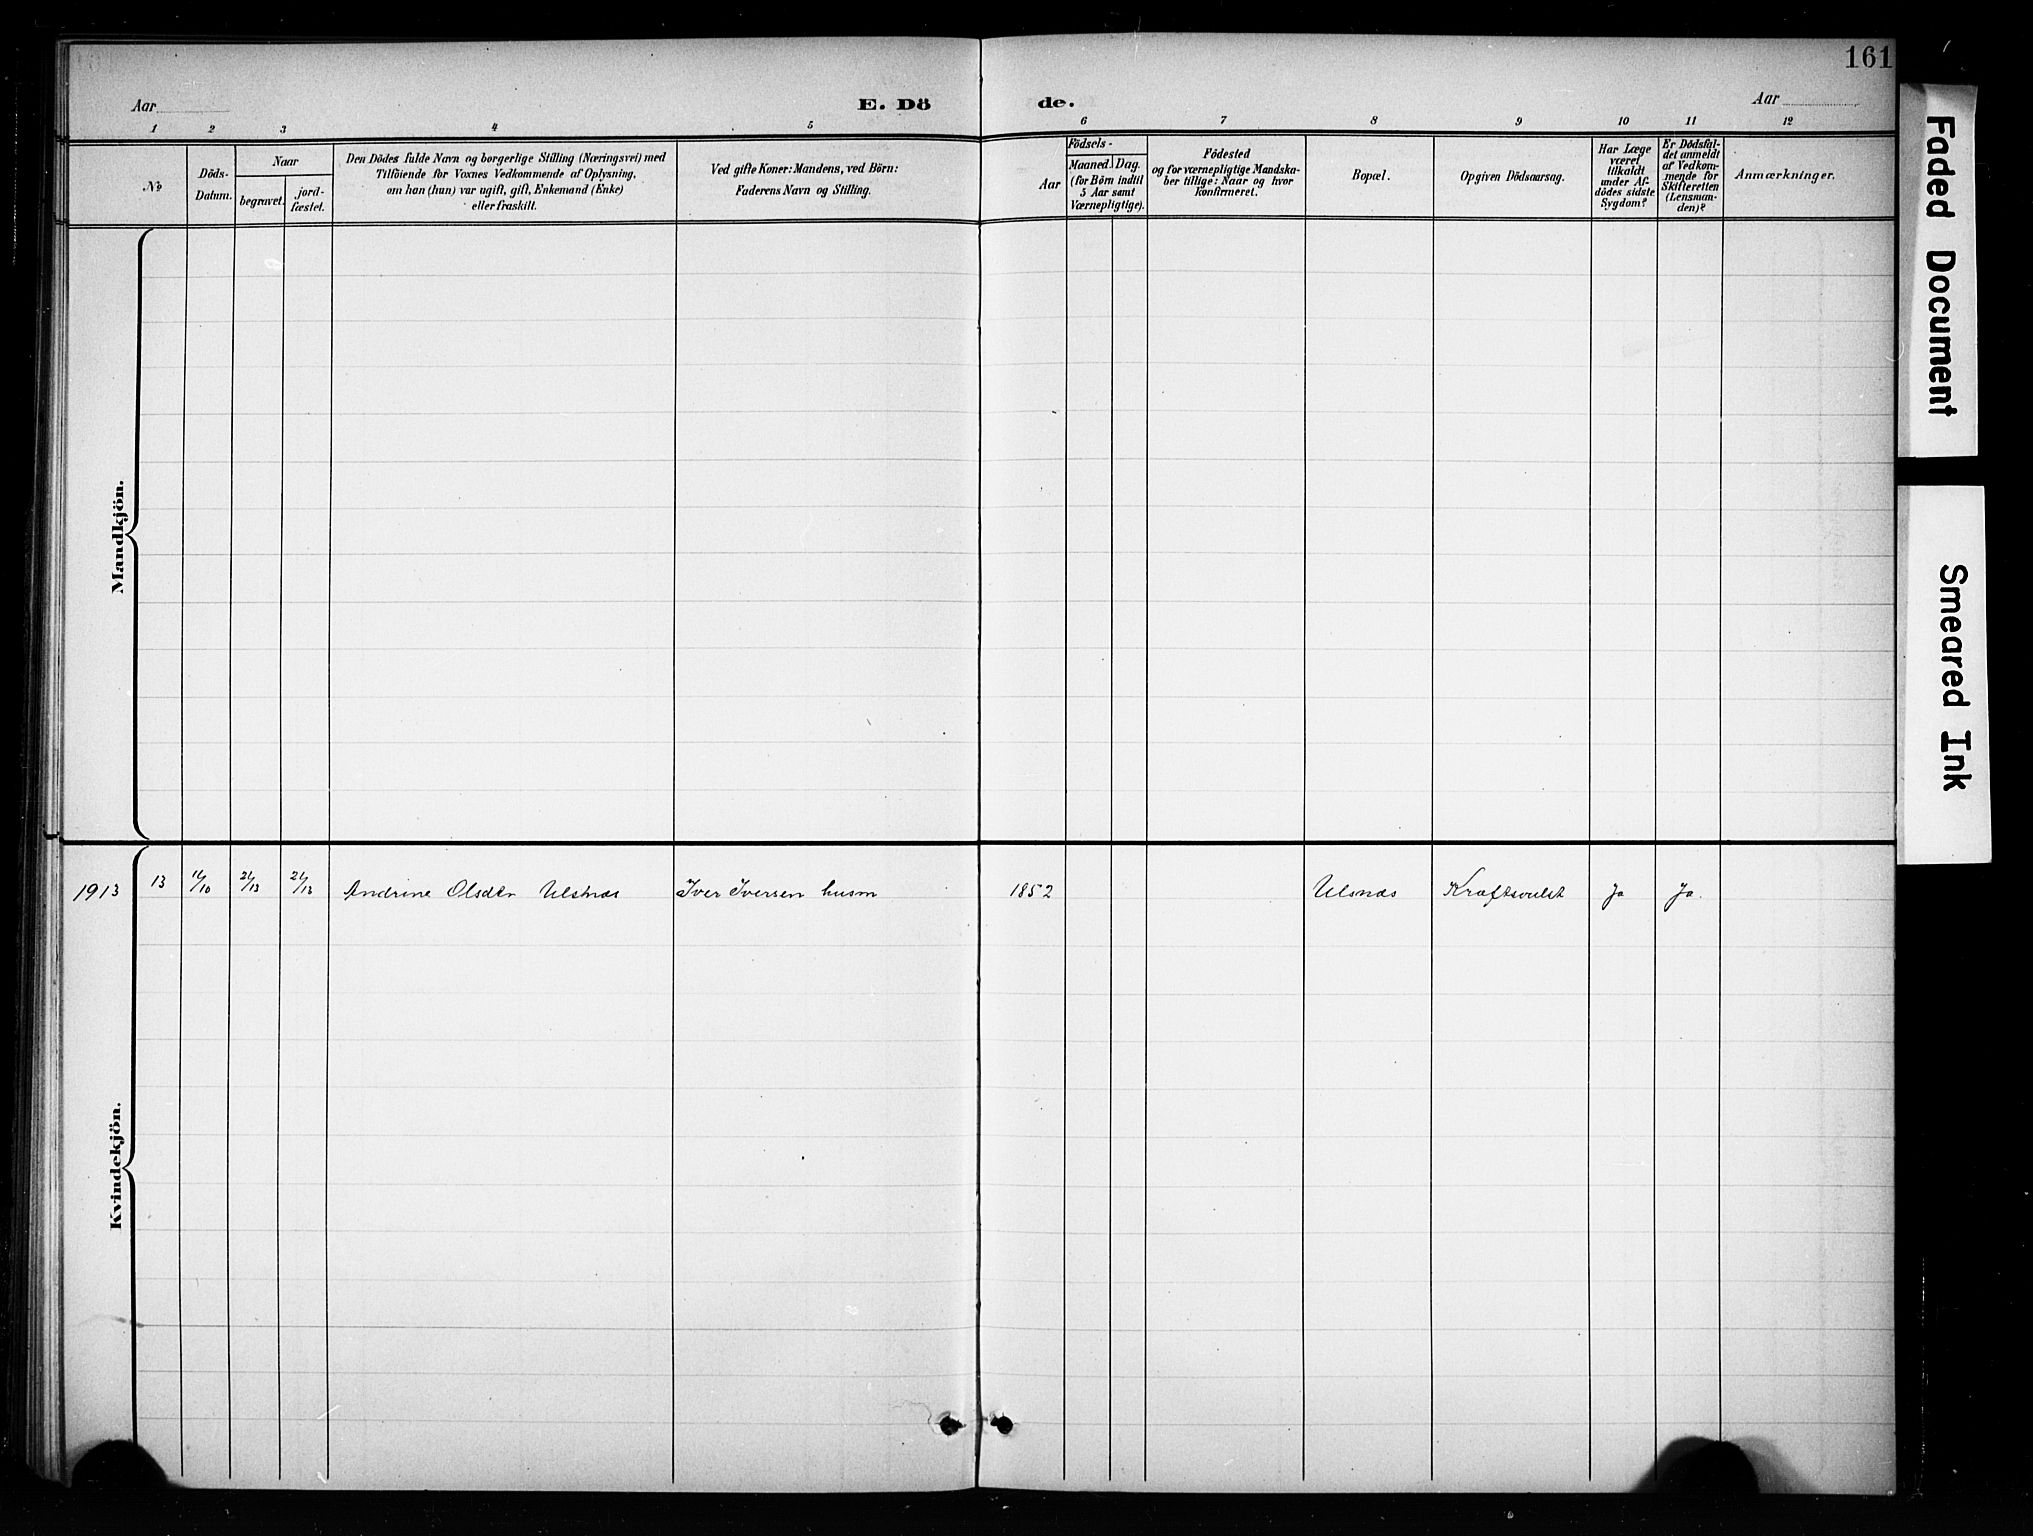 161
Aar
E. Dö
de.
Aar
1 2 3 4 5 6 7 8 9 10 11 12
No
Döds-
Datum.
Naar
begravet.
jord-
fæstet.
Den Dödes fulde Navn og borgerlige Stilling (Næringsvei) med
Tilföiende for Voxnes Vedkommende af Oplysning,
om han (hun) var ugift, gift, Enkemand (Enke)
eller fraskilt.
Ved gifte Koner: Mandens, ved Börn:
Faderens Navn og Stilling.
Födsels-
Aar
Maaned. Dag.
(for Börn indtil
5 Aar samt
Værnepligtige).
Födested
og for værnepligtige Mandska-
ber tillige: Naar og hvor
konfirmeret.
Bopæl.
Opgiven Dödsaarsag.
Har Læge
været
tilkaldt
under Af-
dödes sidste
Sygdom?
Er Dödsfal-
det anmeldt
af Vedkom-
mende for
Skifteretten
(Lensman-
den)?
Anmærkninger.
Mandkjön.
1913 13 21/13 21/13 Andrine Olsdtr Ulsnæs Iver Iversen husm 1852 Ulsnæs Kræftsvulst Ja Ja.
Kvindekjön.
Faded Document
Smeared Ink